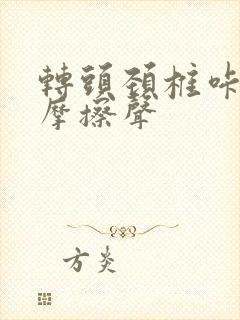 轉頭頚椎咔
摩擦聲
方炎